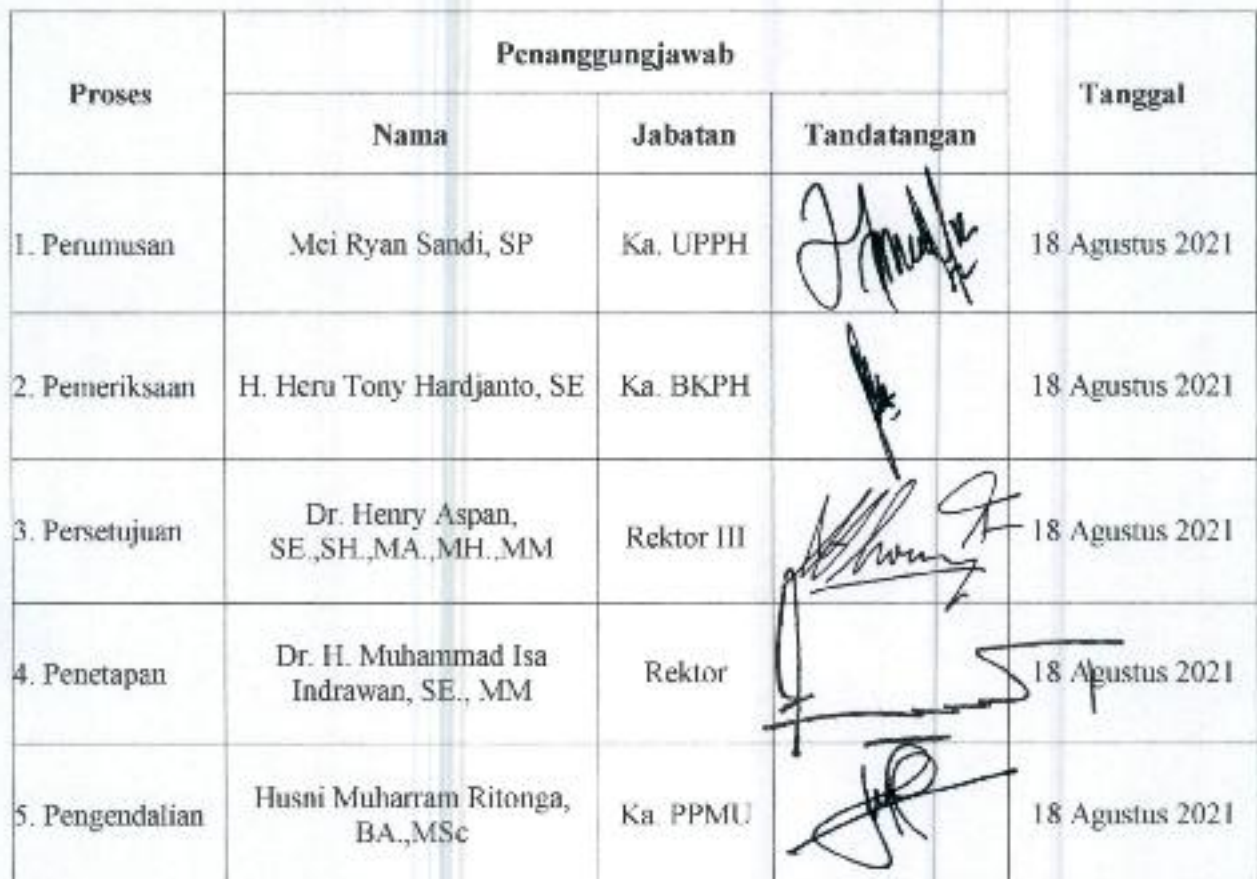 Proses
Penanggungjawab
Tanggal
Nama
Jabatan
Tandatangan
1. Perumusan
Mei Ryan Sandi, SP
Ka. UPPH
18 Agustus 2021
2. Pemeriksaan
H. Heru Tony Hardjanto, SE
Ka. BKPH
18 Agustus 2021
3. Persetujuan
Dr. Henry Aspan,
SE.,SH.,MA.,MH.,MM
Rektor III
18 Agustus 2021
4. Penetapan
Dr. H. Muhammad Isa
Indrawan, SE., MM
Rektor
18 Agustus 2021
5. Pengendalian
Husni Muharram Ritonga,
BA.,MSc
Ka. PPMU
18 Agustus 2021